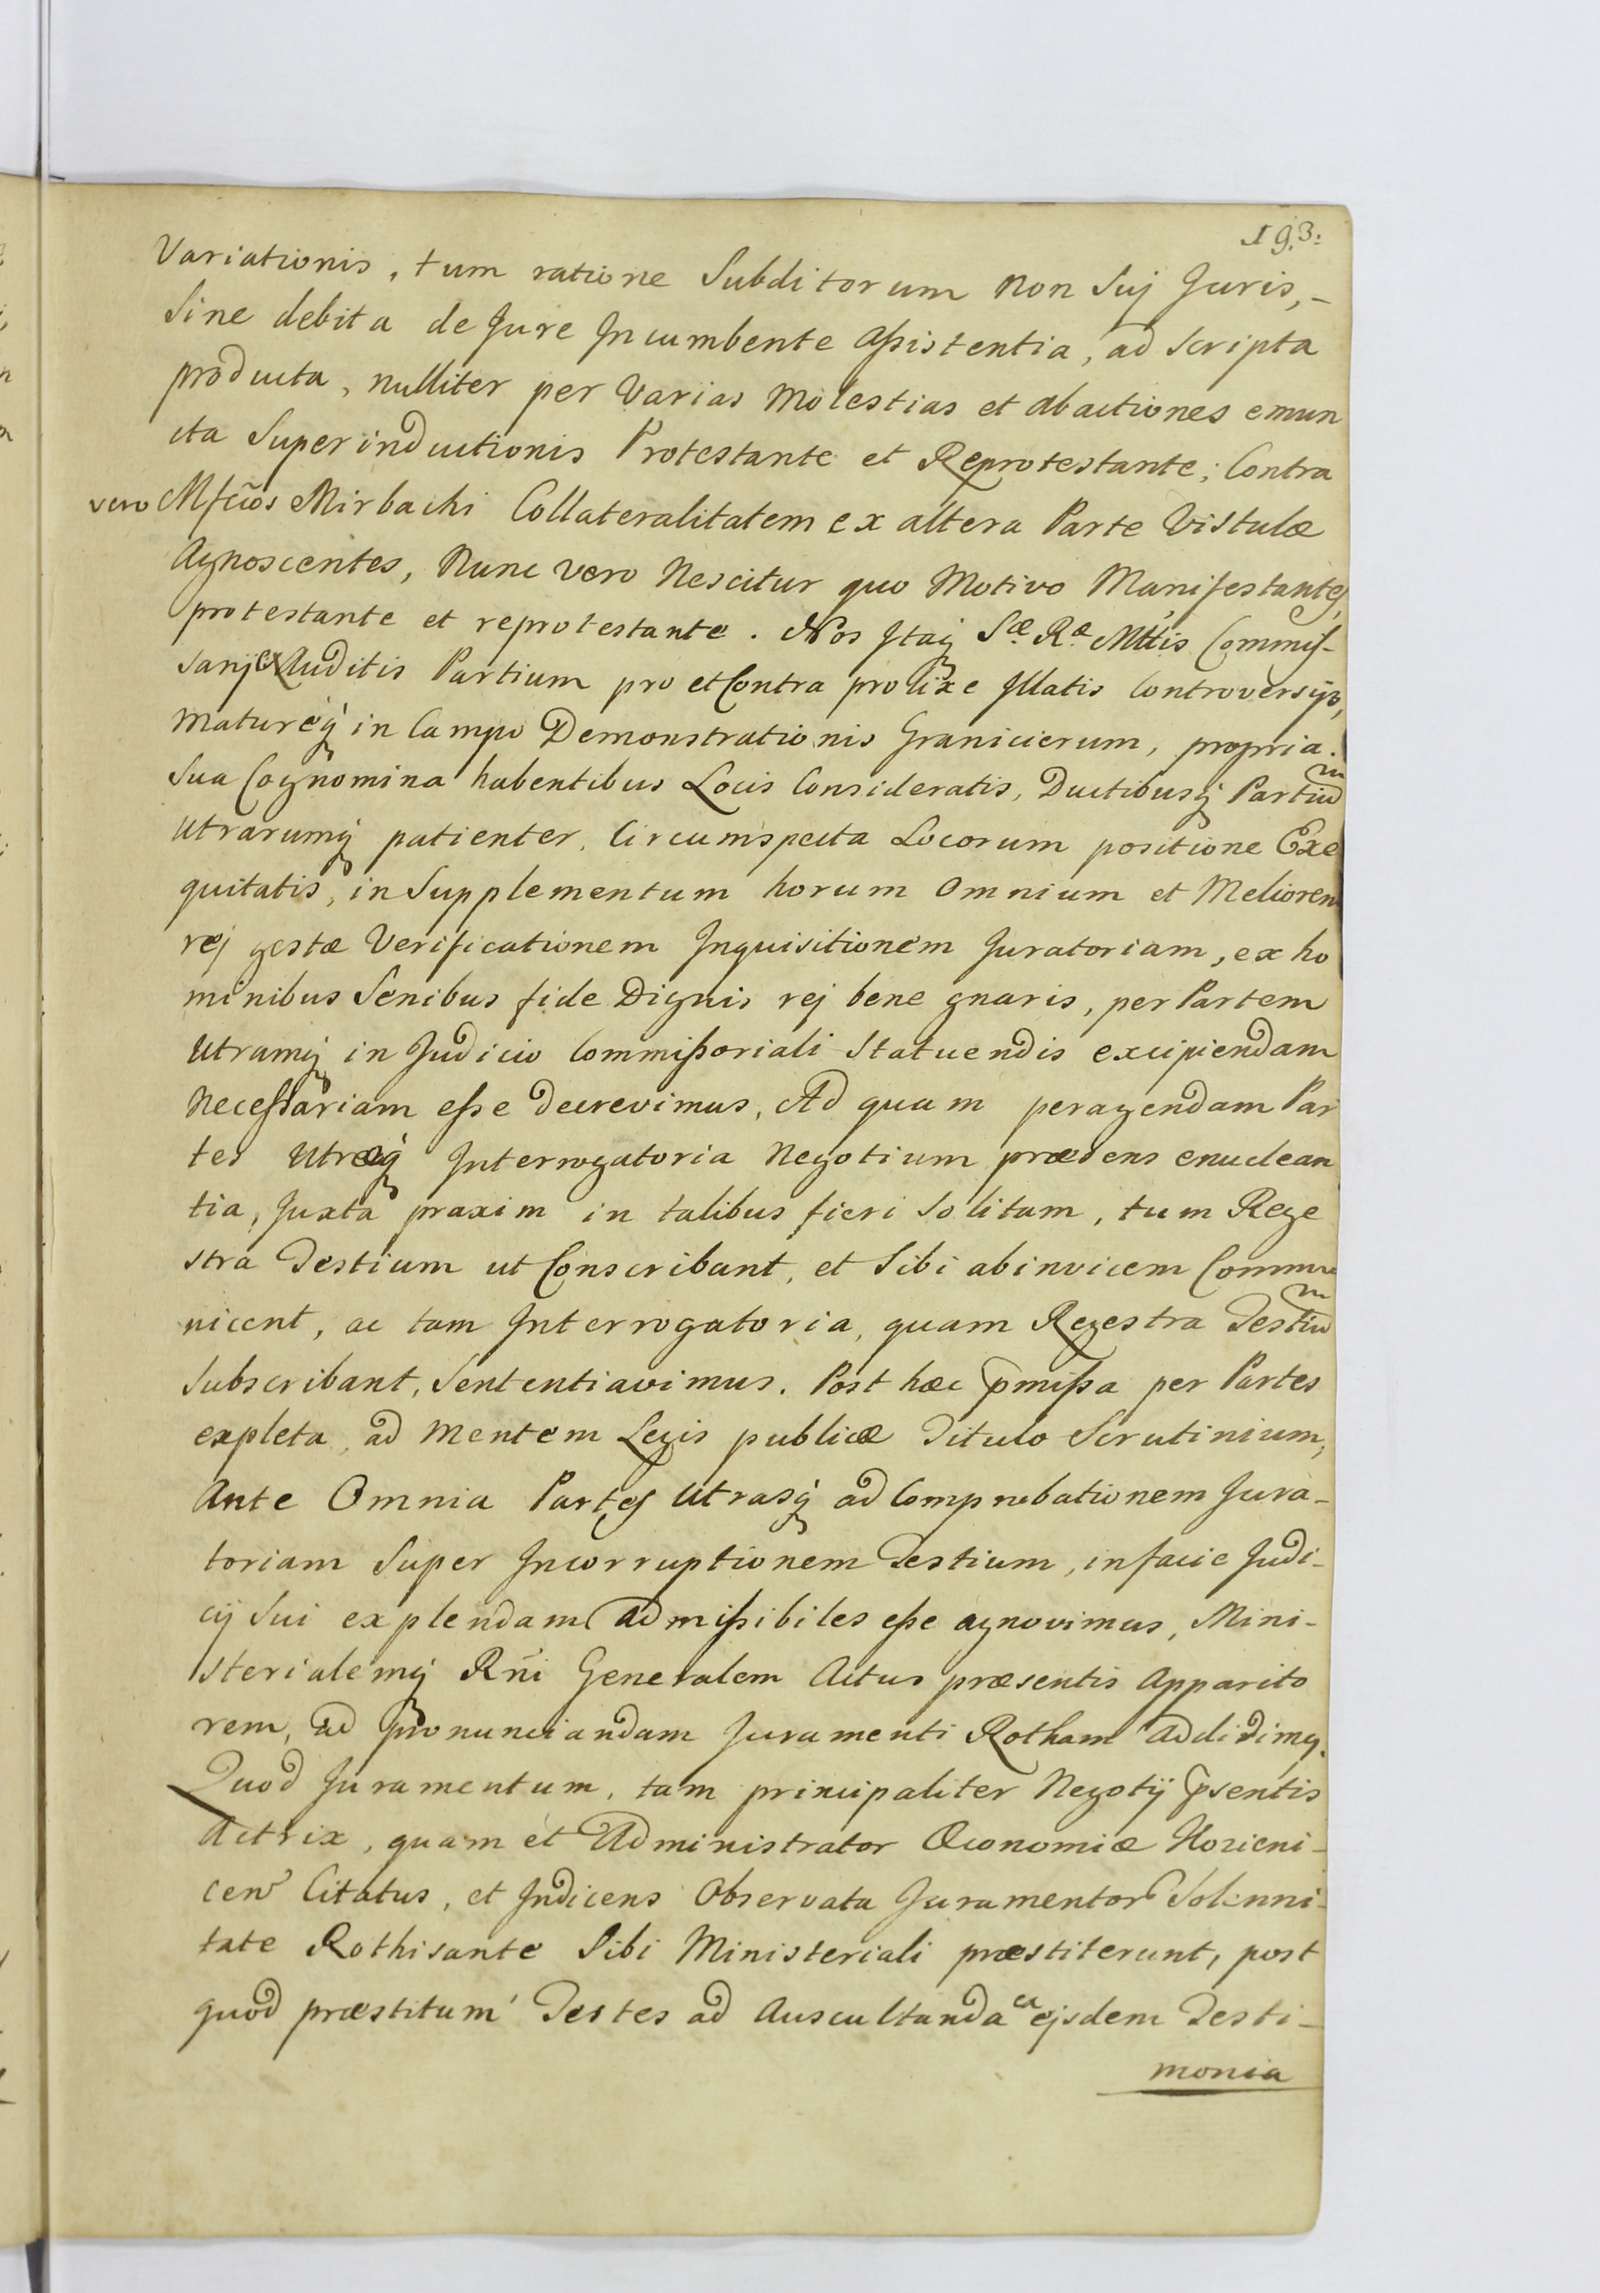 193.
Variationis, tum ratione Subditorum non Suj Juris,-
Sine debita de Jure Jncumbente Aßistentia, ad Scripta
producta, nulliter per Varias Molestias et abactiones emun
cta Superinductionis Protestante et Reprotestante; Contra
vero Mfcos Mirbachi Collateralitatem ex altera Parte Vistulæ
Agnoscentes, Nunc vero Nescitur quo Motivo Manifestantes,
protestante et reprotestante. Nos Jtaq Sæ Ræ Mttis Commis-
sarij Auditis Partium pro et Contra prolixe Jllatis Controversijs,
Matureq in Campo Demonstrationis Granicierum, propria.
Sua Cognomina habentibus Locis Consideratis, Ductibusq Partiũ
Utrarumq patienter, Circumspecta Locorum positione Exe
quitatis, in Supplementum horum Omnium et Meliorem
rej gestæ Verificationem Jnquisitionem Juratoriam, ex ho
minibus Senibus fide Dignis rej bene gnaris, per Partem
Utramq in Judicio Commißoriali Statuendis excipiendam
Necessariam eße decrevimus, Ad quam peragendam Par
tes Utræq Jnterrogatoria Negotium præsens enuclean
tia, Juxta praxim in talibus fieri Solitam, tum Rege
stra Testium ut Conscribant, et Sibi abinvicem Commu
nicent, ac tam Jnterrogatoria, quam Regestra Testiũ
Subscribant, Sententiavimus. Post hæc pmißa per Partes
expleta, ad Mentem Legis publicæ Titulo Scrutinium,
Ante Omnia Partes Utrasq ad Comprobationem Jura-
toriam Super Jncorruptionem Testium, in facie Judi-
cij Sui explendam Admißibiles eße agnovimus, Mini-
sterialemq Rñi Generalem Actus præsentis Apparito
rem, ad pronunciandam Juramenti Rotham addidimq.
Quod Juramentum, tam principaliter Negotij psentis
Actrix, quam et Administrator Œconomiæ
Citatus, et Jndicens Observata Juramentor Solenni-
tate Rothisante Sibi Ministeriali præstiterunt, post
quod præstitum Testes ad Auscultanda ea ejsdem Testi-
monia